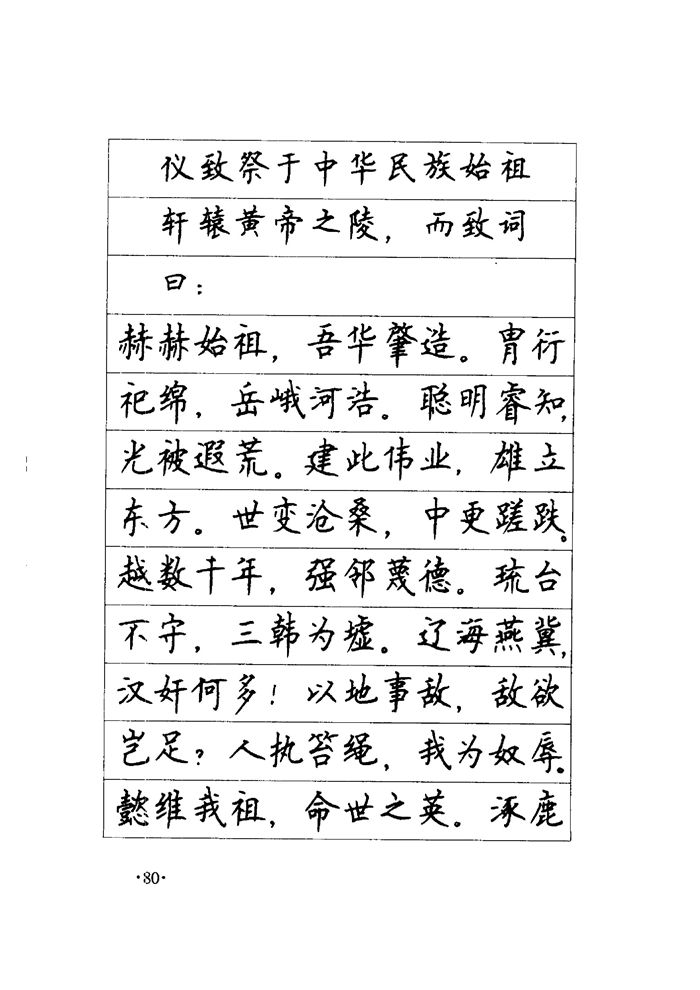 仪致祭于中华民族始祖
轩辕黄帝之陵，而致词
曰：
赫赫始祖，吾华肇造。胄衍
祀绵，岳峨河浩。聪明睿知，
光被遐荒。建此伟业，雄立
东方。世变沧桑，中更蹉跌。
越数千年，强邻蔑德。琉台
不守，三韩为墟。辽海燕冀，
汉奸何多！以地事敌，敌欲
岂足？人执笞绳，我为奴辱。
懿维我祖，命世之英。涿鹿
·80·